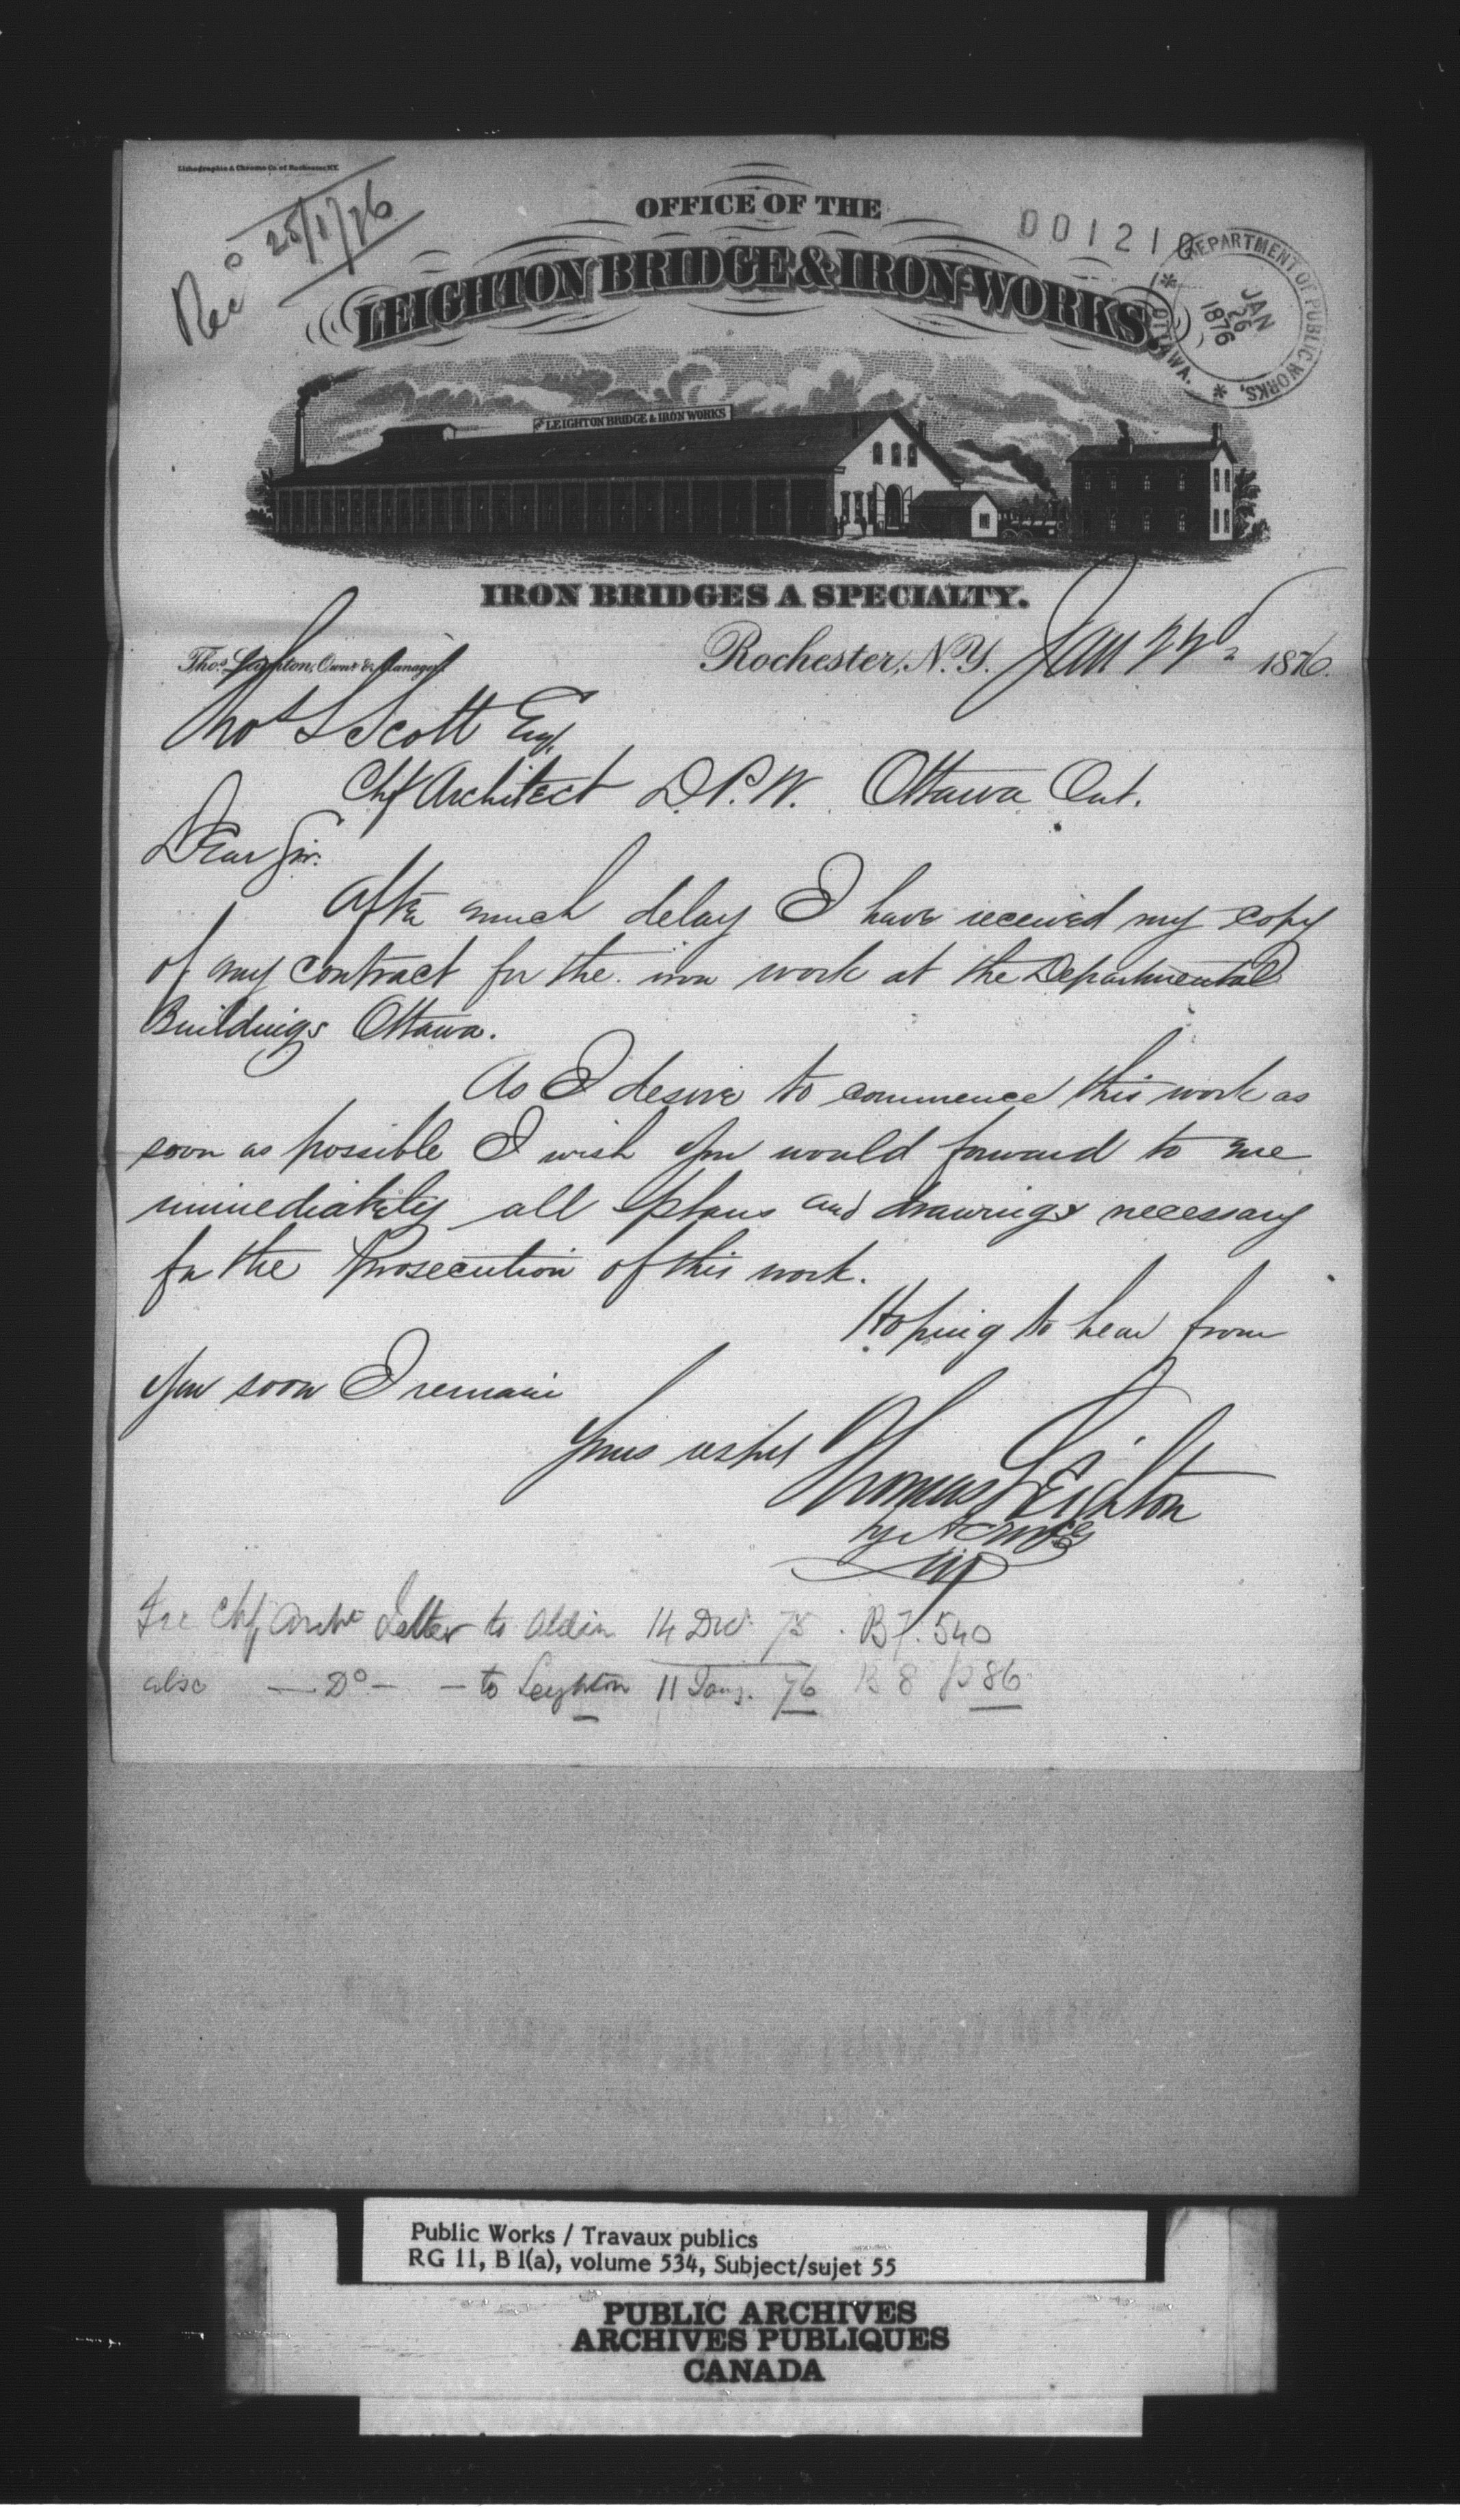 Lithographic & Chromo Co. of Rochester, N.Y.
Rec'd 25/1/76
OFFICE OF THE
001210
LEIGHTON BRIDGE & IRON-WORKS
DEPARTMENT OF PUBLIC WORKS,
* OTTAWA. *
JAN
26
1876
LEIGHTON BRIDGE & IRON WORKS
IRON BRIDGES A SPECIALTY.
Thos. Leighton, Owner & Manager.
Rochester, N.Y. Jan 22d 1876.
Thos S Scott Esq.
Chf Architect D.P.W. Ottawa Ont.
Dear Sir.
After much delay I have received my copy
of my contract for the iron work at the Departmental
Buildings Ottawa.
As I desire to commence this work as
soon as possible I wish you would forward to me
immediately all plans and drawings necessary
for the Prosecution of this work.
Hoping to hear from
you soon I remain
Yours respct
Thomas Leighton
See Chf Archt Letter to Aldin 14 Decr 75. B 7. 540
also — Do — — to Leighton 11 Jany. 76 B 8 p 86
Public Works / Travaux publics
RG 11, B 1(a), volume 534, Subject/sujet 55
PUBLIC ARCHIVES
ARCHIVES PUBLIQUES
CANADA